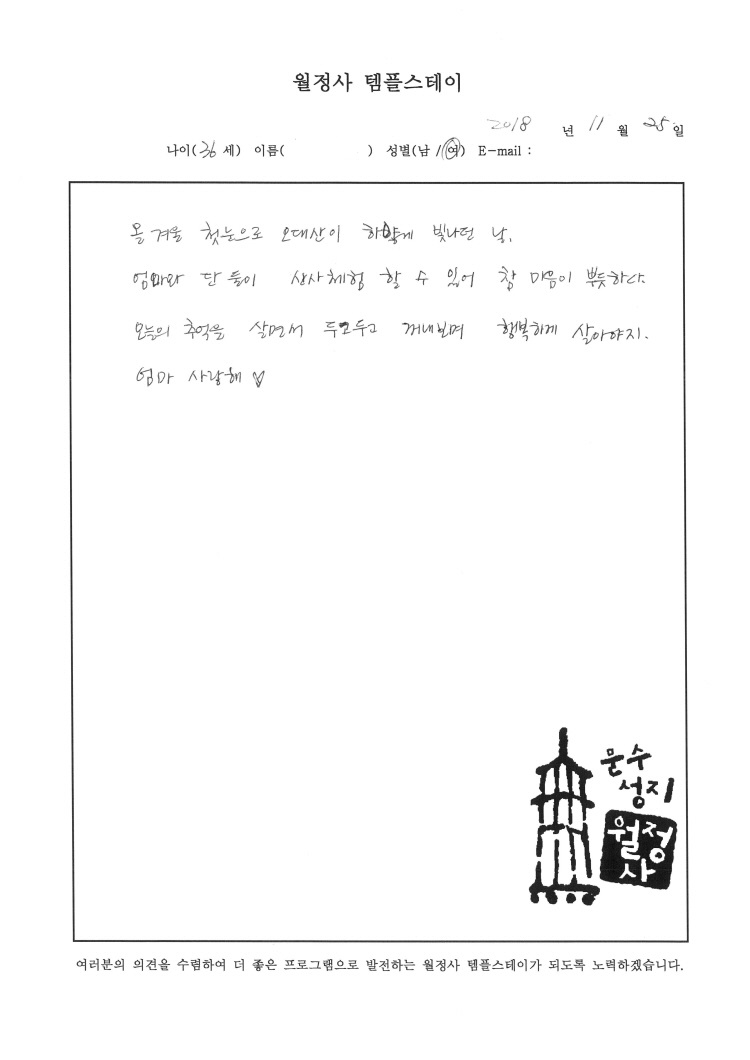 월정사 템플스테이
2018 년 11 월 25 일
나이(36 세) 이름( ) 성별(남 / 여) E-mail :
올 겨울 첫눈으로 오대산이 하얗게 빛나던 날.
엄마와 단 둘이 산사체험 할 수 있어 참 마음이 뿌듯하다.
오늘의 추억을 살면서 두고두고 꺼내보며 행복하게 살아야지.
엄마 사랑해 ♡
문수
성지
월정
사
여러분의 의견을 수렴하여 더 좋은 프로그램으로 발전하는 월정사 템플스테이가 되도록 노력하겠습니다.